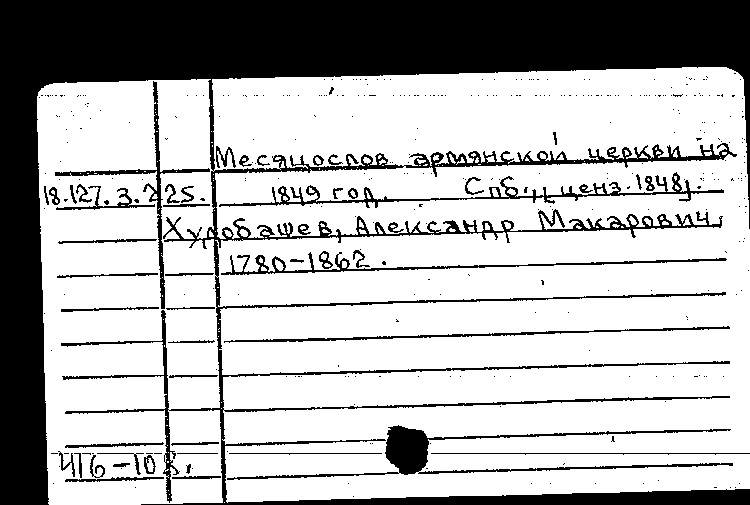 Месяцослов армянской церкви на
18.127.3.225. 1849 год. Спб., [ценз. 1848].
Худобашев, Александр Макарович,
1780-1862.
416-108.